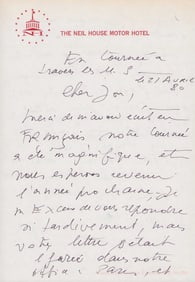 THE NEIL HOUSE MOTOR HOTEL
En tournée à
travers les U S
le 21 Avril
80
Cher Jon,
Merci de m'avoir écrit en
Français notre tournée
a été magnifique, et
nous espérons revenir
l'année prochaine, Je
m'Excuse de vous répondre
si tardivement, mais
votre lettre s'était
dans notre
Paris, et